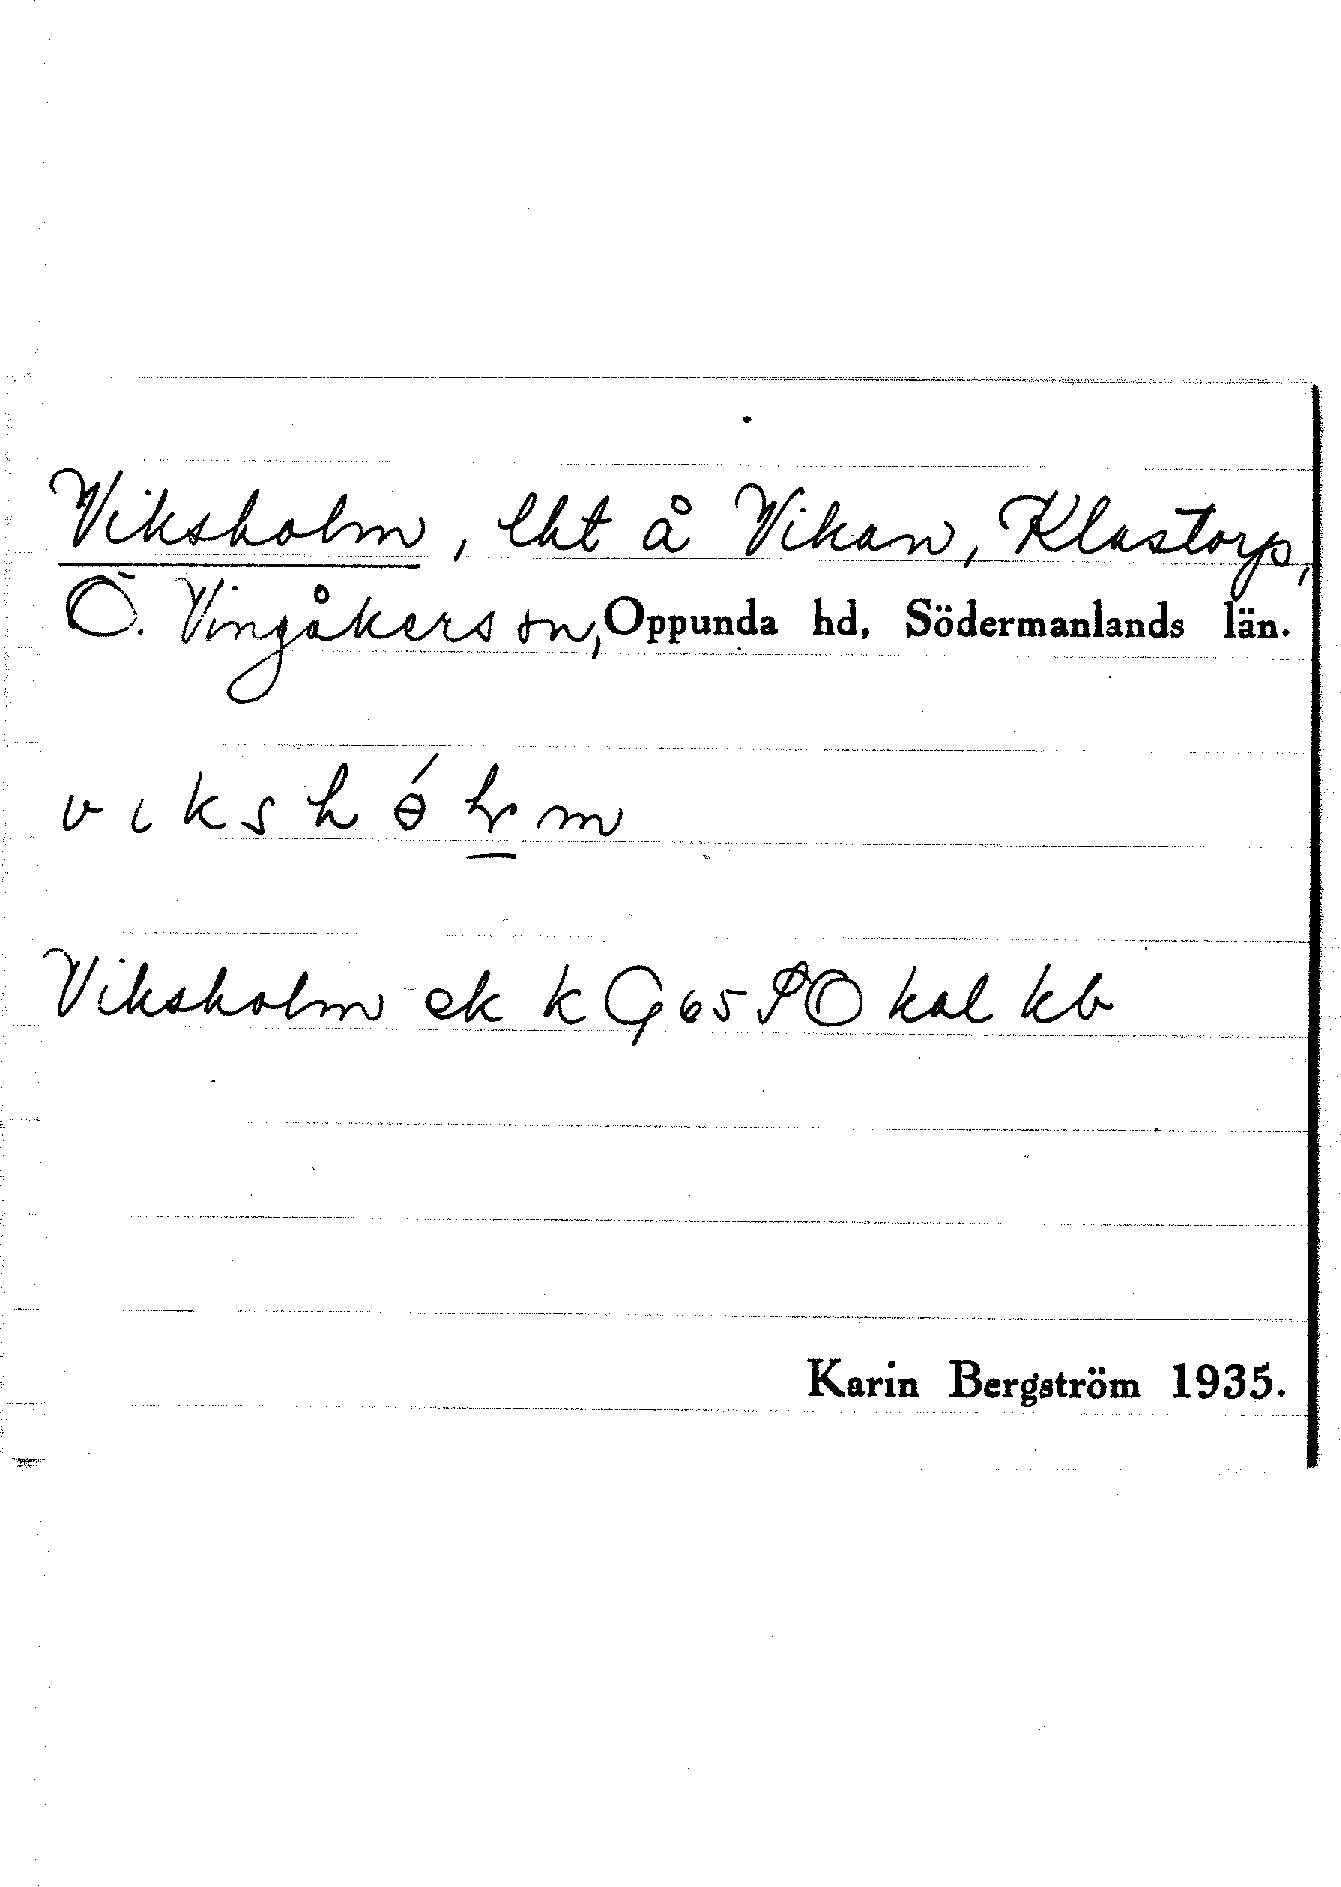 Viksholm, lht å Vikan, Klastorp,
Ö. Vingåkers sn, Oppunda hd, Södermanlands län.
vıkshɵ́lm
Viksholm ek k G65 SO kal kb
Karin Bergström 1935.